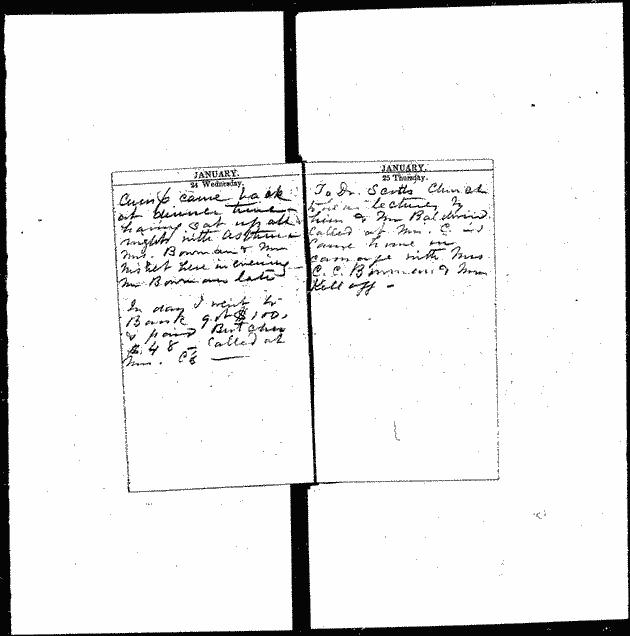 JANUARY.
24 Wednesday.
Cump came back
at dinner time
having sat up all
night with Asthma
Mrs. Bowman & Mr.
here in evening
Mr Bowman late
In day I went to
Bank got $100,
& paid Butcher
$48 - Called at
Mrs. C's
JANUARY.
25 Thursday.
To Dr. Scotts Church
to hear lectures by
him & Mr Baldwin.
Called at Mrs. C. and
Came home in
carriage with Mrs
C. C. Bowman & Mrs
Kellogg -